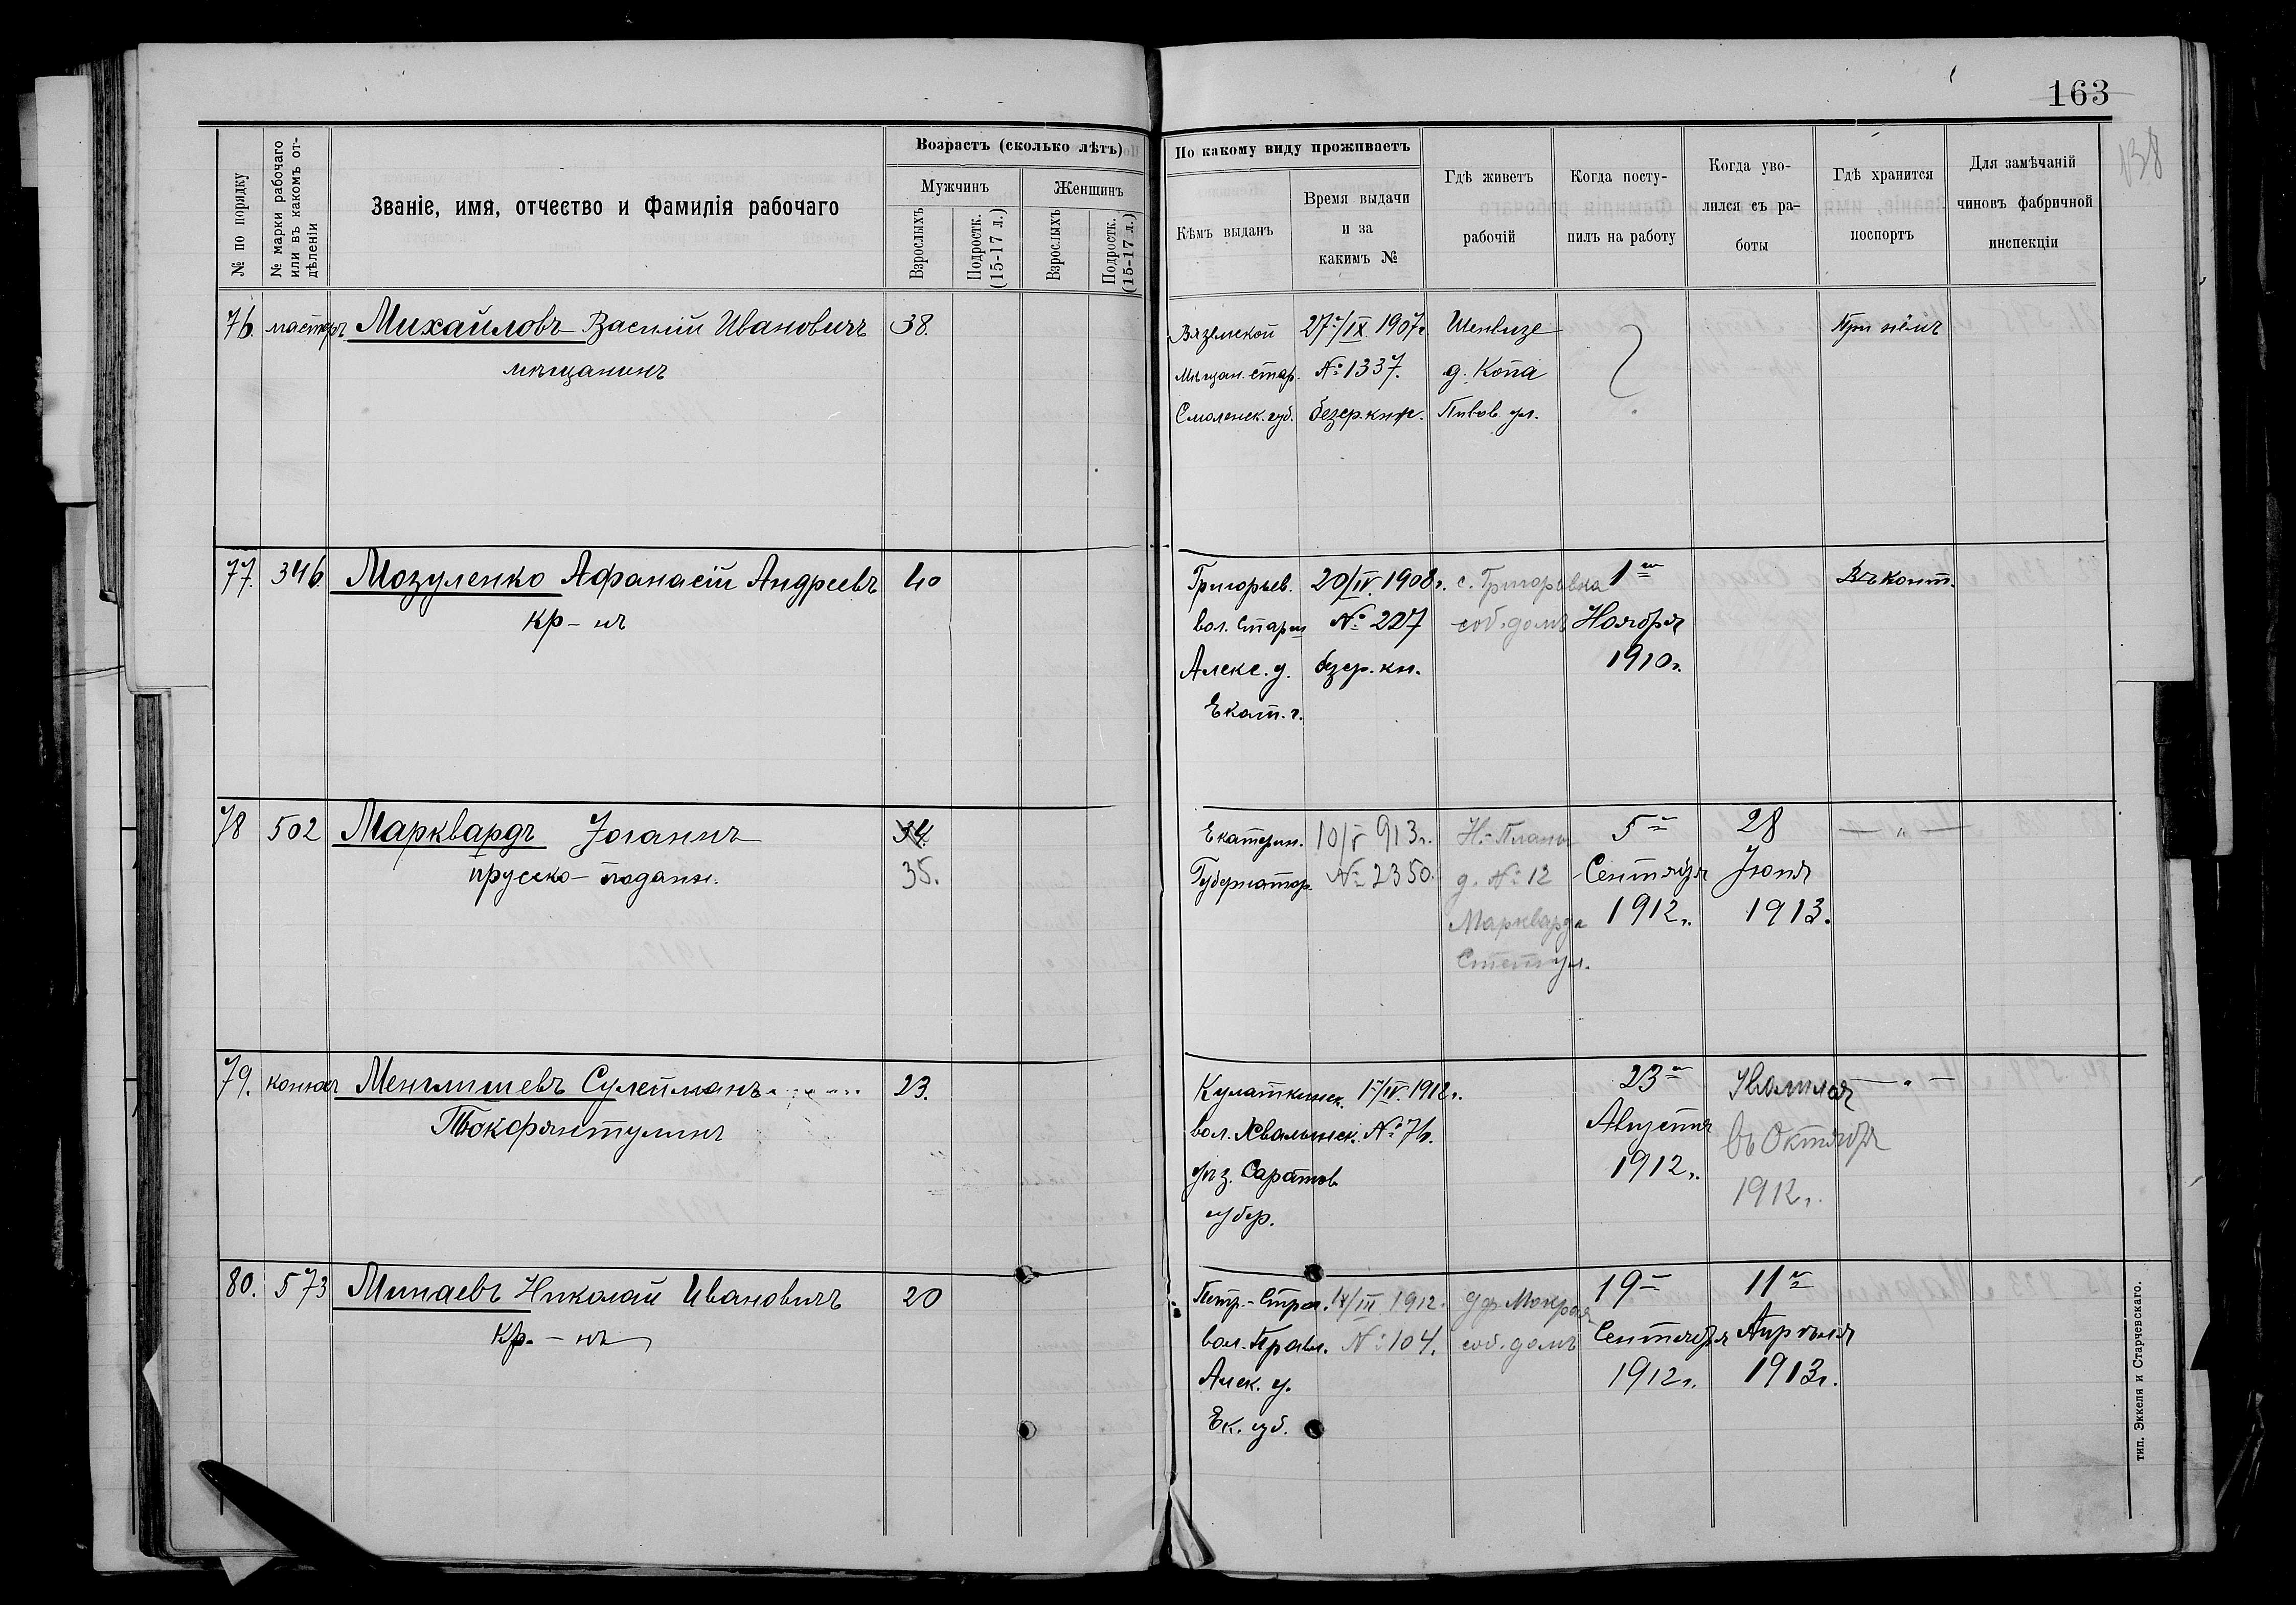 163
138
№ по порядку
№ марки рабочаго или въ какомъ от-дѣленіи
Званіе, имя, отчество и Фамилія рабочаго
Возрастъ (сколько лѣтъ)
Мужчинъ
Женщинъ
Взрослыхъ
Подростк. (15-17 л.)
Взрослыхъ
Подростк. (15-17 л.)
По какому виду проживаетъ
Кѣмъ выданъ
Время выдачи и за какимъ №
Гдѣ живетъ рабочій
Когда посту-пилъ на работу
Когда уво-лился съ ра-боты
Гдѣ хранится поспортъ
Для замѣчаній чиновъ фабричной инспекціи
76. мастеръ Михайловъ Василій Ивановичъ 38.
мѣщанинъ
Вяземской 27го/IX 1907г. При нёмъ
Мѣщан. стар. № 1337. д. Копа
Смоленск. губ. безср. книж. Пивов. ул.
77. 346 Мозуленко Афанасій Андреевъ 40
кр-нъ
Григорьев. 20/IV. 1908г. с. Григоровка 1го Въ конт.
вол. Старш № 227 соб. домъ Ноября
Алекс. у. безср. кн. 1910г.
Екат. г.
78 502 Марквардъ Іоганнъ 34.
прусско-подани. 35.
Екатерин. 10/V 913г. Н.-Планъ 5го 28 — „ —
Губернатор. № 2350. д. № 12 Сентября Іюня
Маркварда 1912г. 1913.
79. конюх Менглишевъ Сулейманъ 23.
Кулаткинск. 17/IV. 1912г. 23го — „ —
вол. Хвалынск. № 76. Августа въ Октябрѣ
уѣз. Саратов. 1912г. 1912г.
губер.
80. 573 Минаевъ Николай Ивановичъ 20
кр.-нъ
III 1912г. Мокрая 19го 11го
вол. Правл. № 104. соб. домъ Сентября Апрѣля
Алек. у. 1912г. 1913г.
Ек. губ.
тип. Эккеля и Старчевскаго.